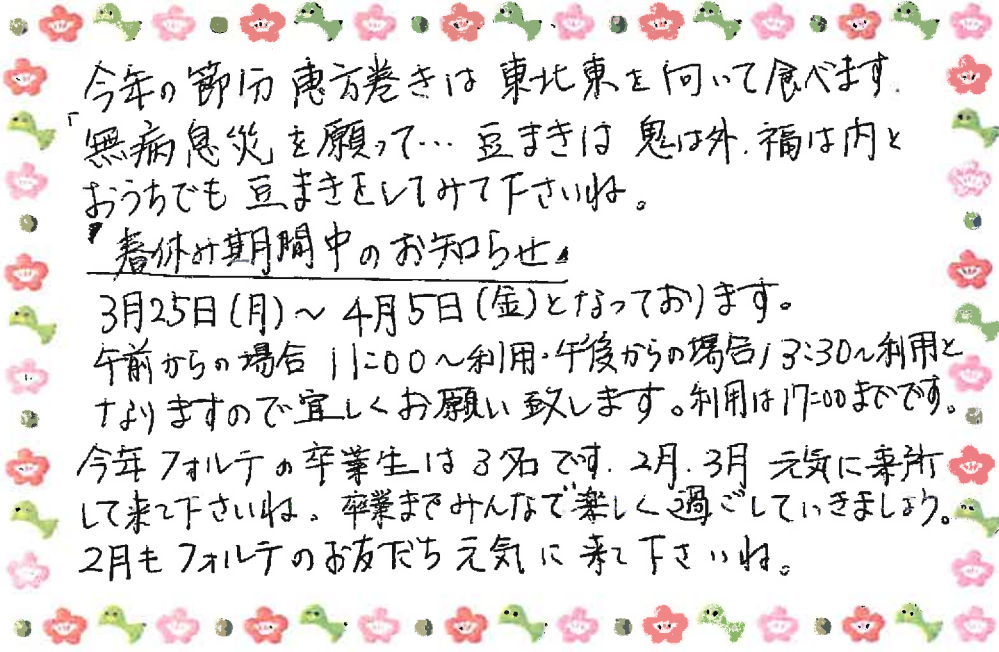 今年の節分 恵方巻きは 東北東を向いて食べます.
「無病息災を願って… 豆まきは 鬼は外.福は内と
おうちでも 豆まきをしてみて下さいね。
『春休み期間中のお知らせ』
3月25日(月)〜 4月5日(金)となっております。
午前からの場合 11:00〜利用・午後からの場合13:30〜利用と
なりますので宜しくお願い致します。利用は17:00までです。
今年フォルテの卒業生は3名です. 2月.3月 元気に来所
して来て下さいね。卒業までみんなで楽しく過ごしていきましょう。
2月もフォルテのお友だち元気に来て下さいね。